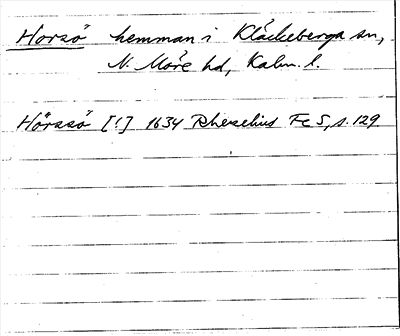 Horsö hemman i Kläckeberga sn,
N. Möre hd, Kalm. l.
Hörssö [!] 1634 Rhezelius Fc 5, s. 129